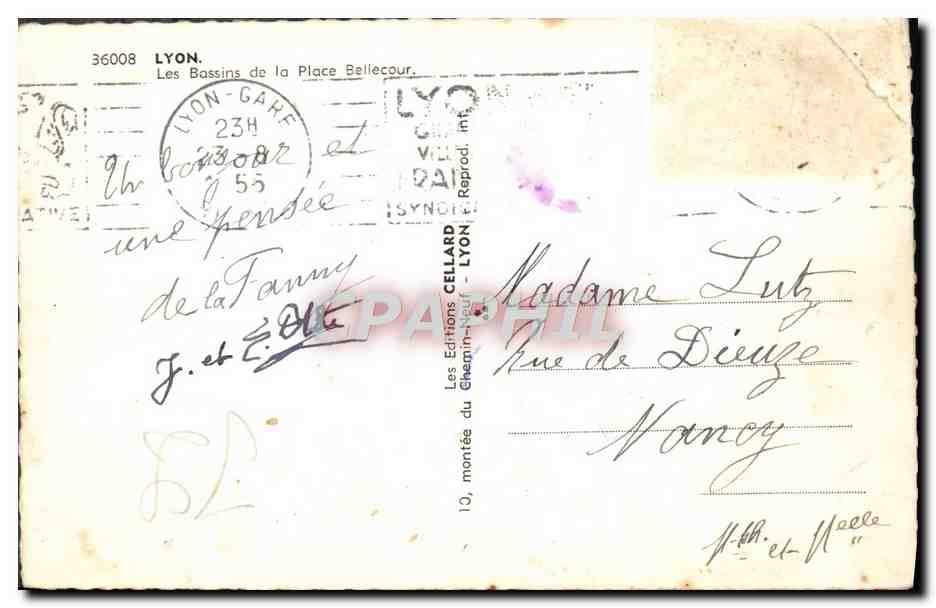 36008 LYON.
Les Bassins de la Place Bellecour.
LYON-GARE
23H
23-8
55
ATIVE
LYO
VIL
SYNDIC
Un bonjour et
une pensée
de la Fanny
J. et
Les Editions CELLARD
10, montée du Chemin-Neuf - LYON
Reprod. int.
CPAPHIL
Madame Lutz
Rue de Dieuze
Nancy
M-the. et Melle